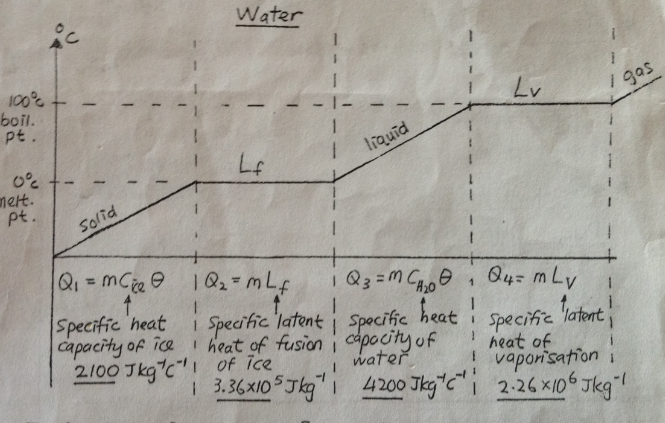 Water
°C
100°c
boil.
pt.
0°c
melt.
pt.
solid
Lf
liquid
Lv
gas
Q1 = m Cice θ
Specific heat
capacity of ice
2100 Jkg⁻¹C⁻¹
Q2 = m Lf
Specific latent
heat of fusion
of ice
3.36×10⁵ Jkg⁻¹
Q3 = m CH2O θ
Specific heat
capacity of
water
4200 Jkg⁻¹C⁻¹
Q4 = m Lv
Specific latent
heat of
vaporisation
2.26×10⁶ Jkg⁻¹